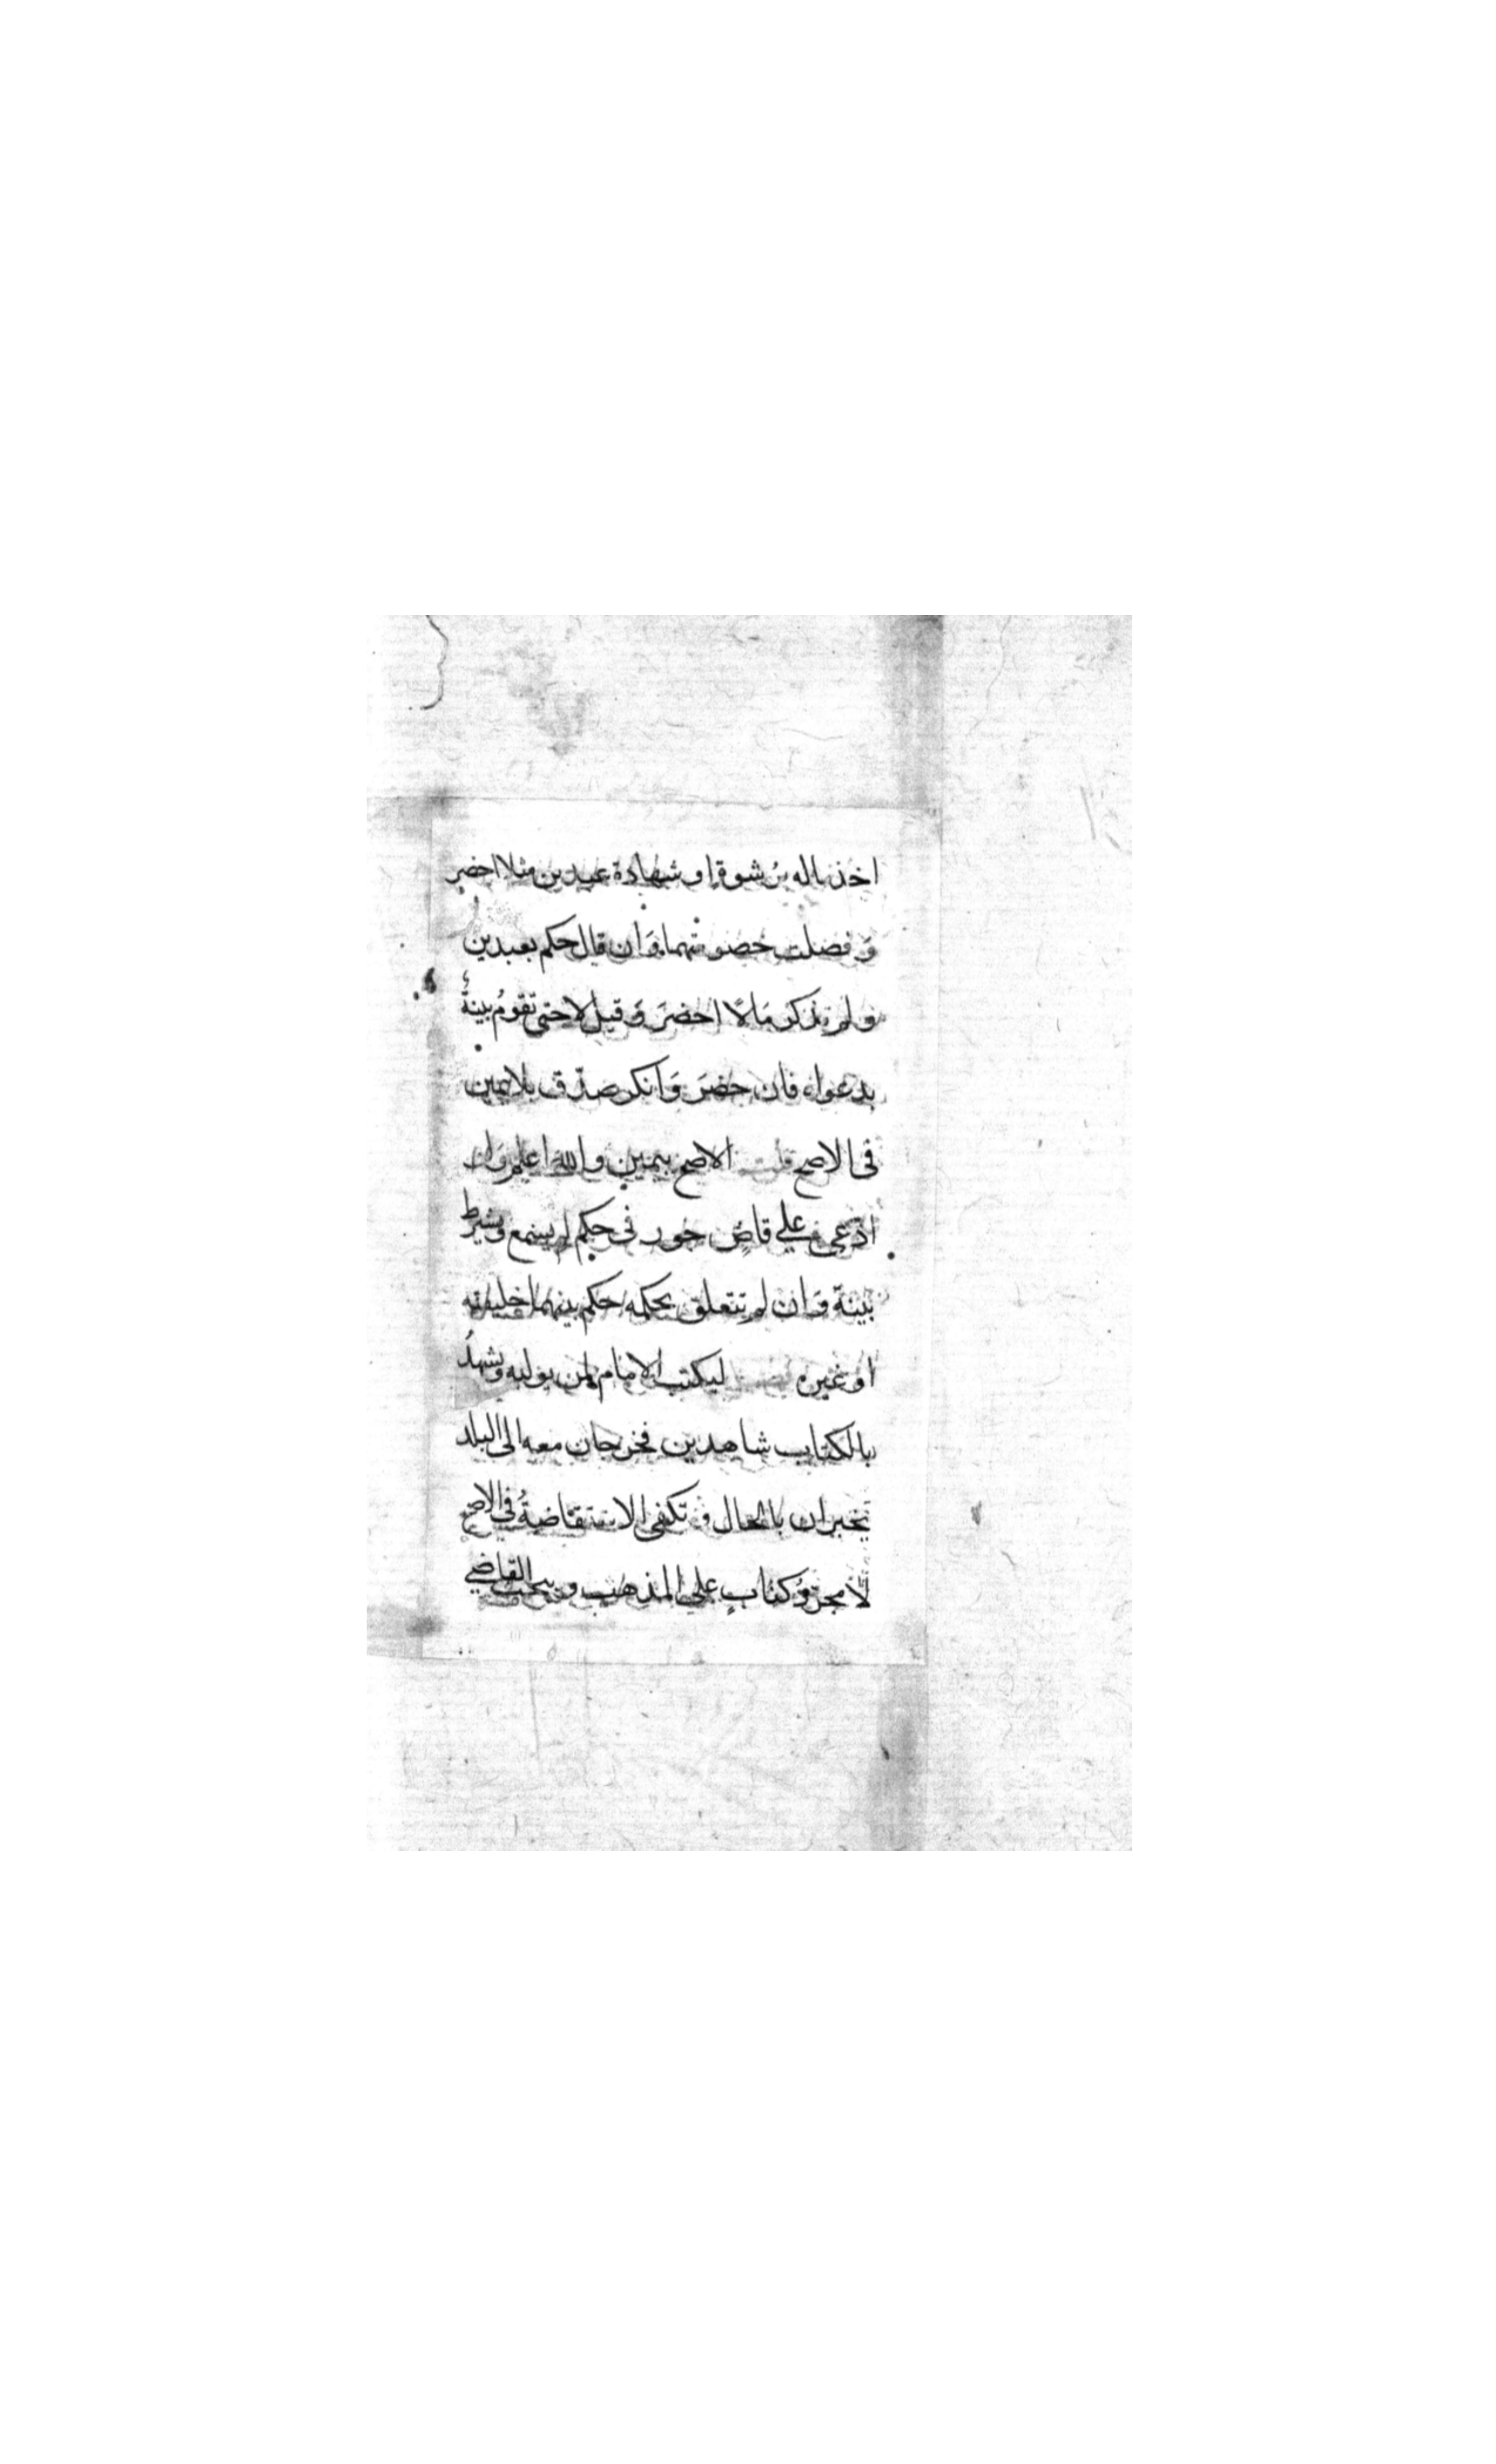 اخذ ماله برشوة او شهادة عبدين مثلا احضر
وَ فصلت خصومتهما وَان قال حكم بعبدين
ولم يذكر مَالًا احضرَ وَ قيل لا حتى تقومُ بينةٌ
بدعواه فان حضرَ وَانكر صدّق بلا يمين
فى الاصح قلت الاصح بيمين والله اعلم وَان
ادّعى على قاضٍ جور فى حكم لم يسمع ويشترط
بينة وَان لم تتعلق بحكمه حكم بينهما خليفته
او غيره ليكتب الامام لمن يوليه ويشهدُ
بالكتاب شاهدين يخرجان معه الى البلد
يخبران بالحال و تكفى الاستفاضةُ فى الاصح
لا مجردُ كتابٍ على المذهب و يبحث القاضي